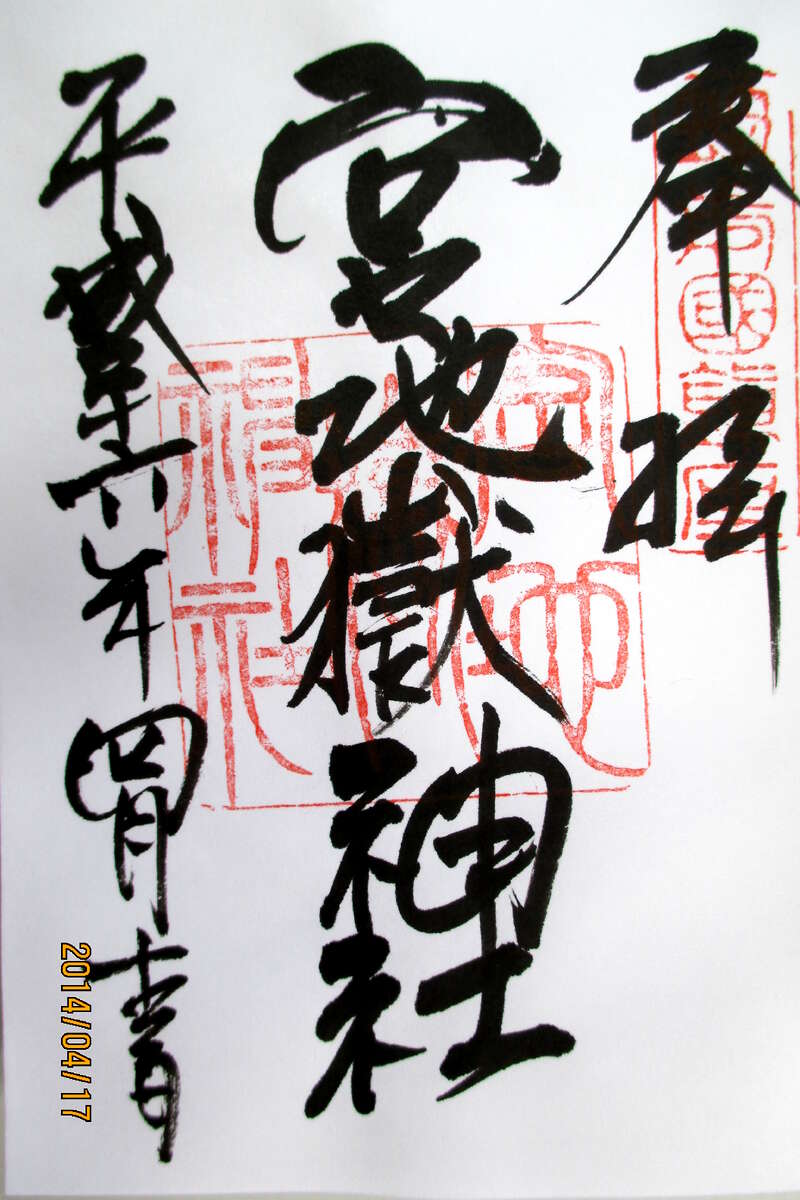 奉拝
宮地嶽神社
平成二十六年四月十
宮地嶽神社
2014/04/17